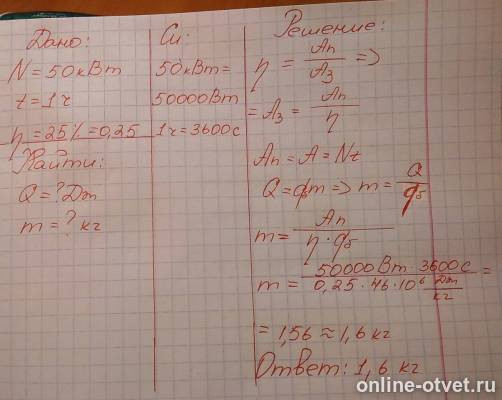 Дано:
N = 50 кВт
t = 1 ч
η = 25% = 0,25
Найти:
Q = ? Дж
m = ? кг
Си:
50 кВт =
50000 Вт
1 ч = 3600 с
Решение:
η = Aп / Aз =>
= Aз = Aп / η
Aп = A = Nt
Q = qm => m = Q / qб
m = Aп / η · qб
m = 50000 Вт · 3600 с / 0,25 · 46 · 10⁶ Дж/кг =
= 1,56 ≈ 1,6 кг
Ответ: 1,6 кг
online-otvet.ru